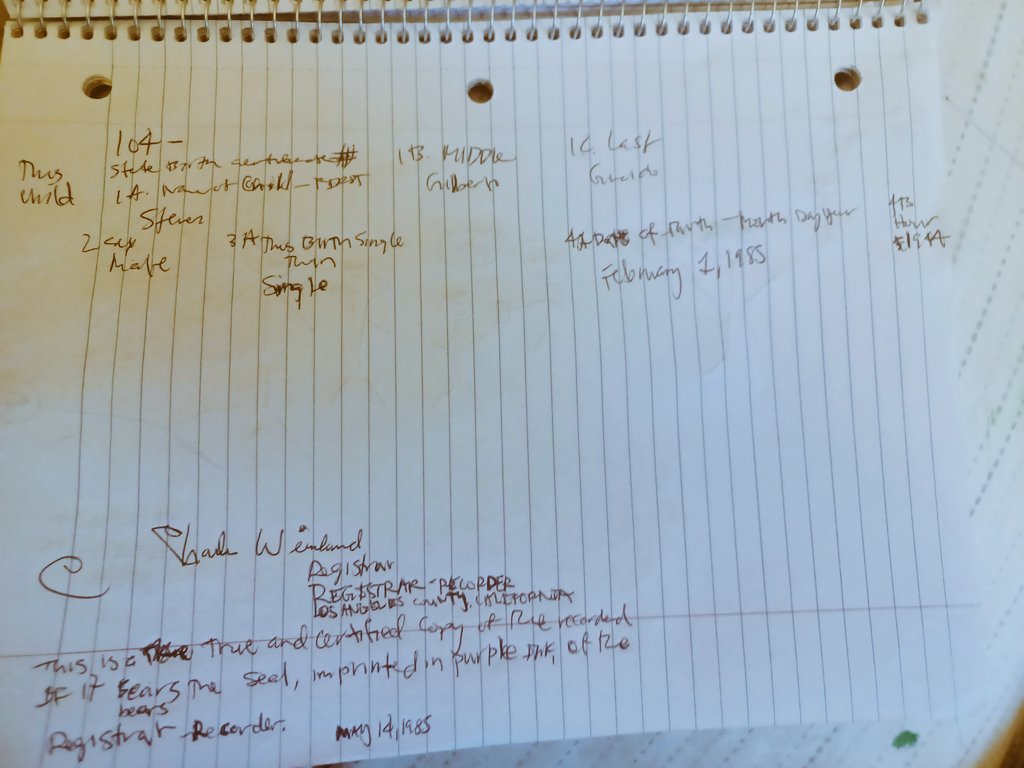 104 -
This
child
State Birth certificate #
1A. Name of Child - FIRST
Steven
1B. MIDDLE
Gilbert
1C. Last
Guardo
2 sex
Male
3A This Birth Single
Twin
Single
4A Date of Birth - Month Day Year
February 1, 1985
4B
Hour
Charles Weissburd
Registrar
REGISTRAR - RECORDER
LOS ANGELES COUNTY, CALIFORNIA
This is a True and certified copy of the recorded
IF it Bears The seal, imprinted in purple Ink, of the
bears
Registrar - Recorder.
MAY 14, 1985